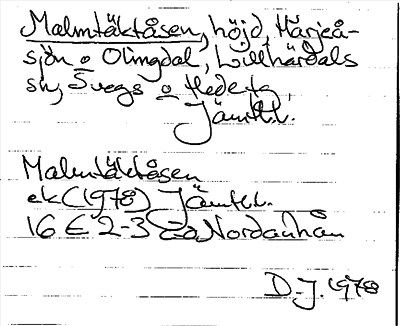 Malmtäktåsen, höjd, Härjeå-
sjön o Olingdal, Lillhärdals
sn, Svegs o Hede tg,
Jämtl.l.
Malmtäktåsen
ek (1978) Jämtl.l.
16 E 2-3 Nordanhån
D-J. 1978